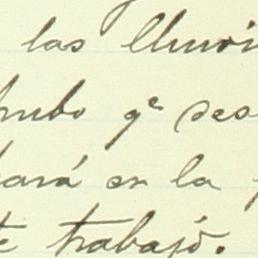 las lluvi
hubo qe des
ará en la
te trabajó.